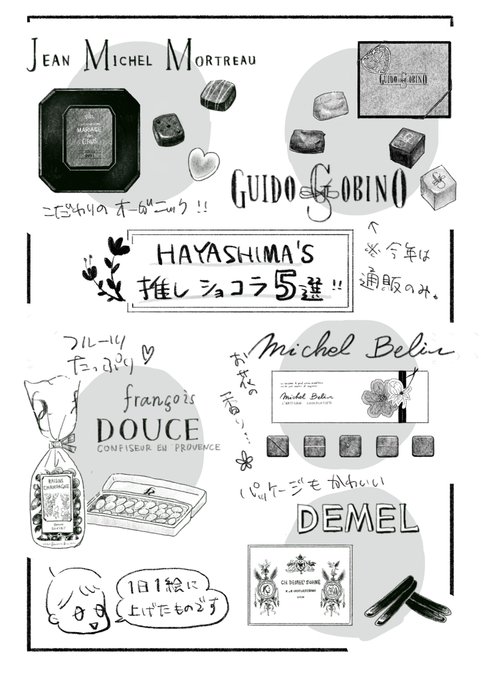 JEAN MICHEL MORTREAU
MARIAGE
GRUÉ
こだわりの オーガニック !!
GUIDO GOBINO
GUIDO GOBINO
↑
※今年は
通販のみ。
HAYASHIMA'S
推し ショコラ 5選 !!
フルーツ
たっぷり♡
françois
DOUCE
CONFISEUR EN PROVENCE
RAISINS
お花の
香り…
Michel Belin
Michel Belin
L'ARTISAN CHOCOLATIER
パッケージも かわいい
DEMEL
CH. DEMEL'S SÖHNE
1日1絵に
上げたものです